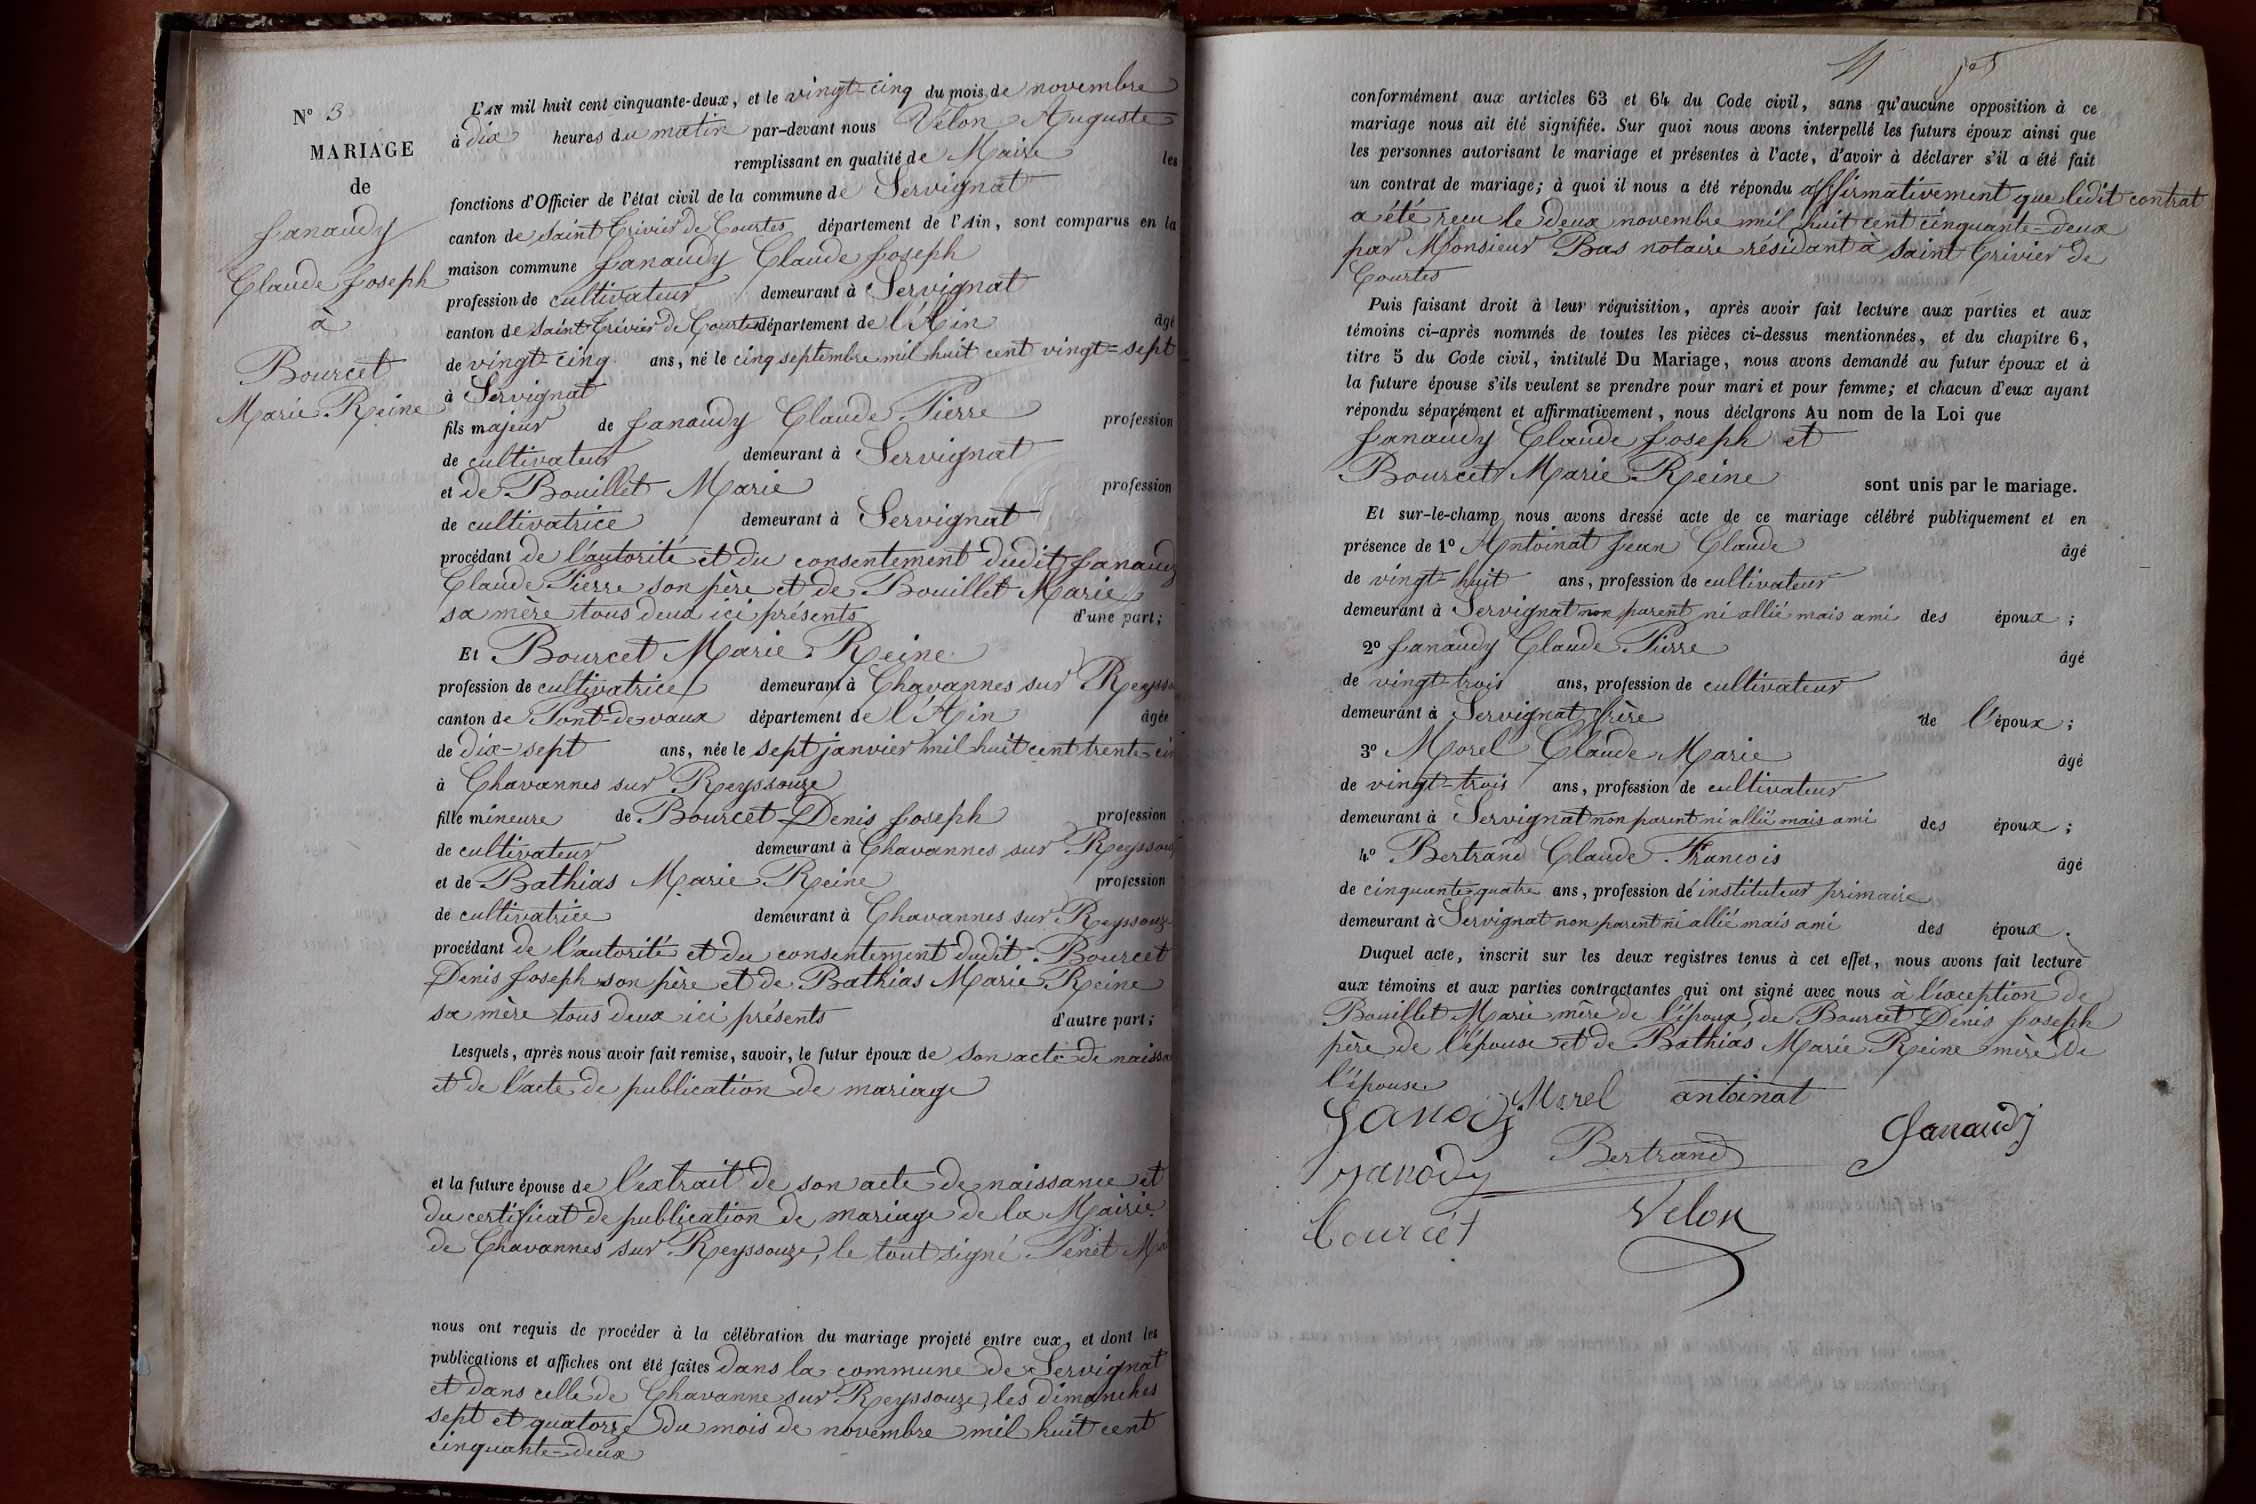 N° 3
MARIAGE
de
Janaudy
Claude Joseph
à
Bourcet
Marie Reine
L'AN mil huit cent cinquante-deux, et le vingt-cinq du mois de novembre
à dix heures du matin par-devant nous Velon Auguste
remplissant en qualité de Maire les
fonctions d'Officier de l'état civil de la commune de Servignat
canton de Saint Trivier de Courtes département de l'Ain, sont comparus en la
maison commune Janaudy Claude Joseph
profession de cultivateur demeurant à Servignat
canton de Saint Trivier de Courtes département de l'Ain âgé
de vingt-cinq ans, né le cinq septembre mil huit cent vingt=sept
à Servignat
fils majeur de Janaudy Claude Pierre profession
de cultivateur demeurant à Servignat
et de Bouillet Marie profession
de cultivatrice demeurant à Servignat
procédant de l'autorité et du consentement dudit Janaudy
Claude Pierre son père et de Bouillet Marie
sa mère tous deux ici présents d'une part;
Et Bourcet Marie Reine
profession de cultivatrice demeurant à Chavannes sur Reysso
canton de Pont-de-vaux département de l'Ain âgée
de dix-sept ans, née le sept janvier mil huit cent trente-cin
à Chavannes sur Reyssouze
fille mineure de Bourcet Denis Joseph profession
de cultivateur demeurant à Chavannes sur Reyssouz
et de Bathias Marie Reine profession
de cultivatrice demeurant à Chavannes sur Reyssouze
procédant de l'autorité et du consentement dudit Bourcet
Denis Joseph son père et de Bathias Marie Reine
sa mère tous deux ici présents d'autre part;
Lesquels, après nous avoir fait remise, savoir, le futur époux de son acte de naissa
et de l'acte de publication de mariage
et la future épouse de l'extrait de son acte de naissance et
du certificat de publication de mariage de la Mairie
de Chavannes sur Reyssouze, le tout signé Penet Ma
nous ont requis de procéder à la célébration du mariage projeté entre eux, et dont les
publications et affiches ont été faites dans la commune de Servignat
et dans celle de Chavanne sur Reyssouze, les dimanches
sept et quatorze du mois de novembre mil huit cent
cinquante-deux
conformément aux articles 63 et 64 du Code civil, sans qu'aucune opposition à ce
mariage nous ait été signifiée. Sur quoi nous avons interpellé les futurs époux ainsi que
les personnes autorisant le mariage et présentes à l'acte, d'avoir à déclarer s'il a été fait
un contrat de mariage; à quoi il nous a été répondu affirmativement que ledit contrat
a été reçu le deux novembre mil huit cent cinquante=deux
par Monsieur Bas notaire résidant à Saint Trivier de
Courtes
Puis faisant droit à leur réquisition, après avoir fait lecture aux parties et aux
témoins ci-après nommés de toutes les pièces ci-dessus mentionnées, et du chapitre 6,
titre 5 du Code civil, intitulé Du Mariage, nous avons demandé au futur époux et à
la future épouse s'ils veulent se prendre pour mari et pour femme; et chacun d'eux ayant
répondu séparément et affirmativement, nous déclarons Au nom de la Loi que
Janaudy Claude Joseph et
Bourcet Marie Reine sont unis par le mariage.
Et sur-le-champ nous avons dressé acte de ce mariage célébré publiquement et en
présence de 1° Antoinat Jean Claude âgé
de vingt-huit ans, profession de cultivateur
demeurant à Servignat non parent ni allié mais ami des époux;
2° Janaudy Claude Pierre âgé
de vingt-trois ans, profession de cultivateur
demeurant à Servignat frère de l'époux;
3° Morel Claude Marie âgé
de vingt-trois ans, profession de cultivateur
demeurant à Servignat non parent ni allié mais ami des époux;
4° Bertrand Claude François âgé
de cinquante-quatre ans, profession de instituteur primaire
demeurant à Servignat non parent ni allié mais ami des époux.
Duquel acte, inscrit sur les deux registres tenus à cet effet, nous avons fait lecture
aux témoins et aux parties contractantes qui ont signé avec nous à l'exception de
Bouillet Marie mère de l'époux, de Bourcet Denis Joseph
père de l'épouse et de Bathias Marie Reine mère de
l'épouse
Morel antoinat
Janaudy
Bertrand
Velon